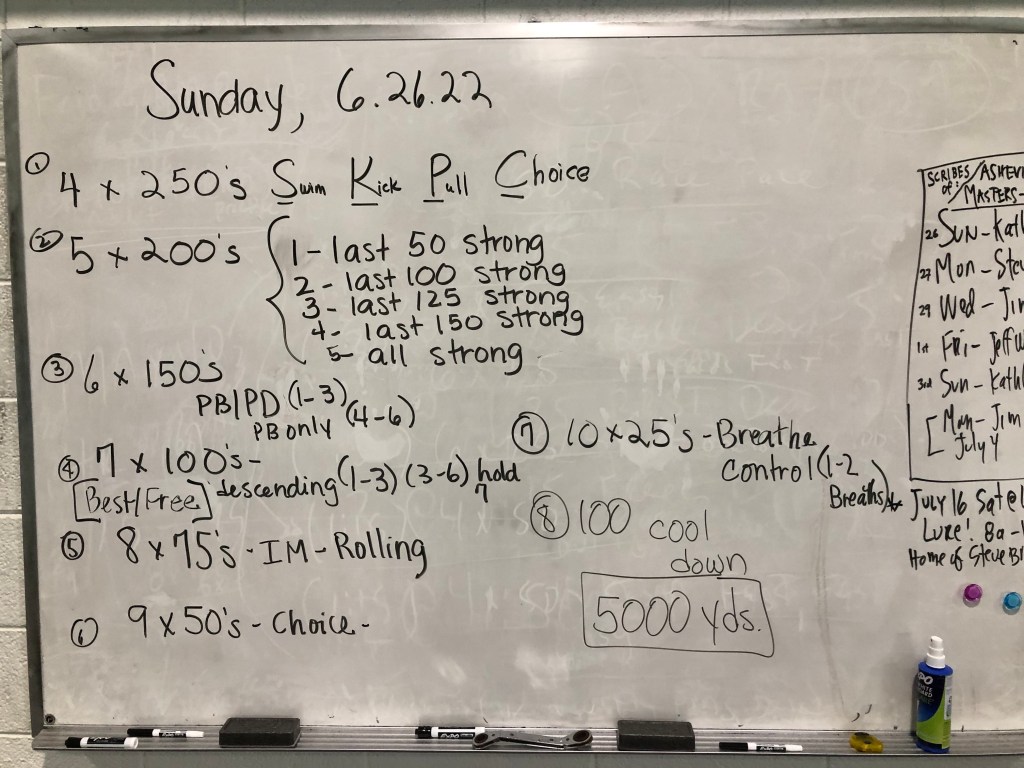 Sunday, 6.26.22
① 4 x 250's Swim Kick Pull Choice
② 5 x 200's
1 - last 50 strong
2 - last 100 strong
3 - last 125 strong
4 - last 150 strong
5 - all strong
③ 6 x 150's
PB/PD (1-3)
PB only (4-6)
④ 7 x 100's -
[Best/Free] descending (1-3) (3-6) hold
7
⑤ 8 x 75's - IM - Rolling
⑥ 9 x 50's - Choice -
⑦ 10 x 25's - Breathe
Control (1-2
Breaths)
⑧ 100 cool
down
5000 yds.
SCRIBES / ASHEV
of: MASTERS-
26 Sun - Kath
27 Mon - Stev
29 Wed - Jim
1st Fri - Jeff W
3rd Sun - Kath
[Mon - Jim
July 4
July 16 Sat @
Luke! 8a -
Home of Steve
EXPO